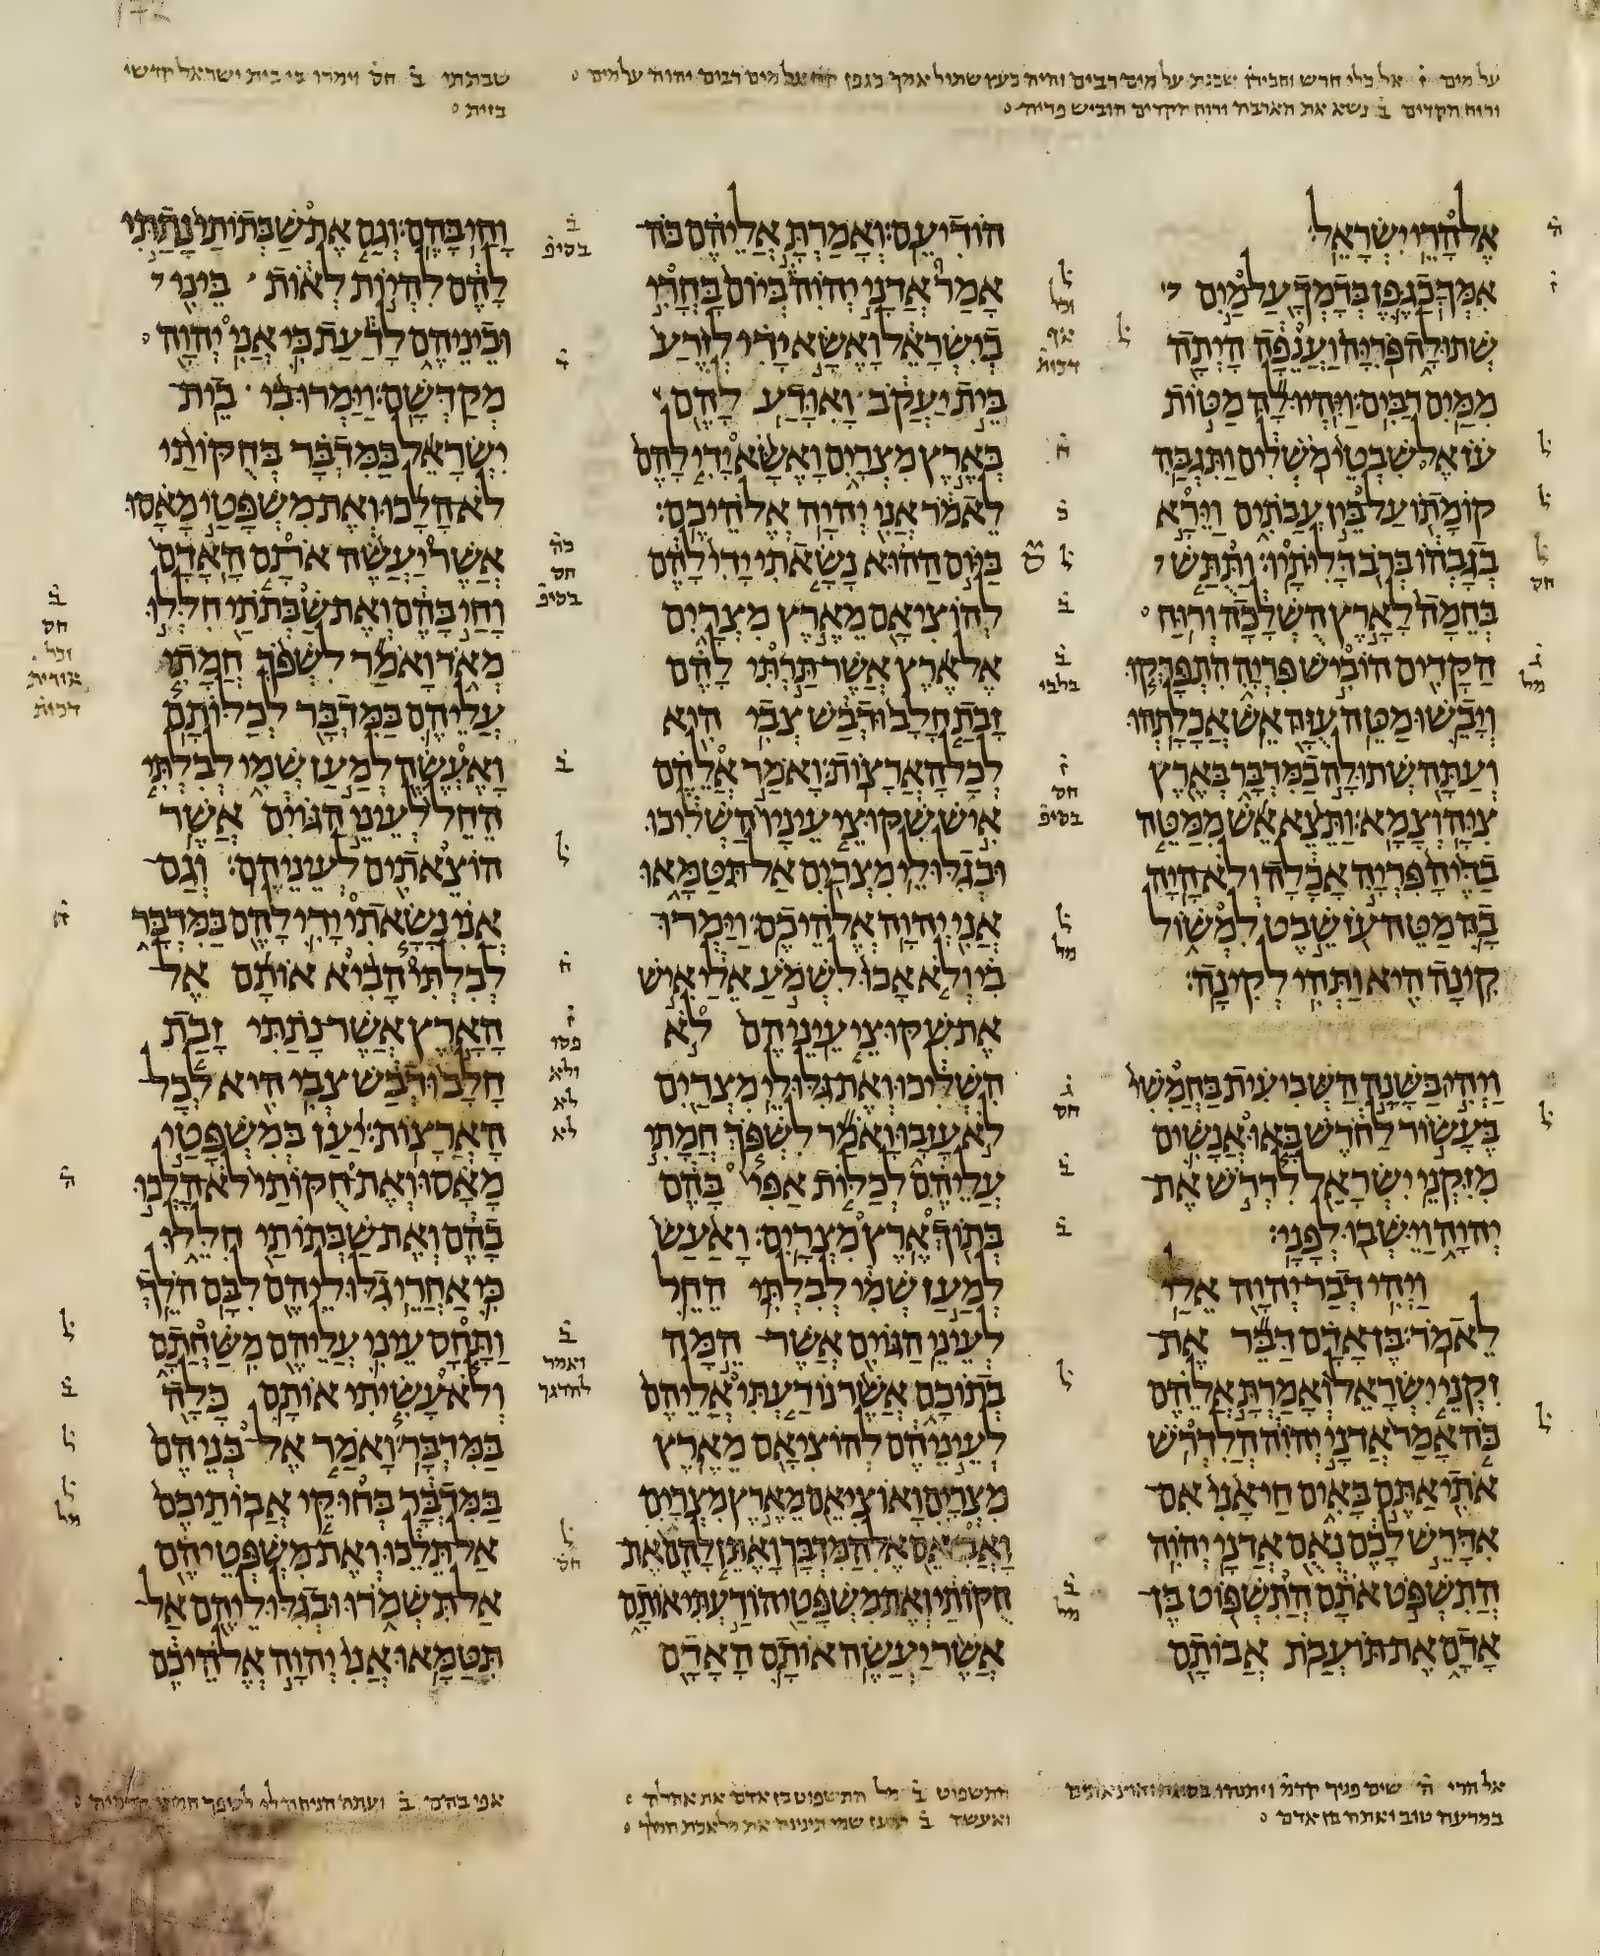 על מים ז אל כלי חרש וחבירו שכנת על מים רבים והיה כעץ שתול אמך כגפן על מים רבים יהוה על מים
ורוח הקדים ב נשא את הארבה ורוח הקדים הוביש פריה
שבתתי ב חס וימרו בי בית ישראל קדשי
בזית
אֶל הָרֵי יִשְׂרָאֵל׃
אִמְּךָ כַגֶּפֶן בְּדָמְךָ עַל מַיִם
שְׁתוּלָה פֹּרִיָּה וַעֲנֵפָה הָיְתָה
מִמַּיִם רַבִּים׃ וַיִּהְיוּ לָהּ מַטּוֹת
עֹז אֶל שִׁבְטֵי מֹשְׁלִים וַתִּגְבַּהּ
קוֹמָתוֹ עַל בֵּין עֲבֹתִים וַיֵּרָא
בְגָבְהוֹ בְּרֹב דָּלִיֹּתָיו׃ וַתֻּתַּשׁ
בְּחֵמָה לָאָרֶץ הֻשְׁלָכָה וְרוּחַ
הַקָּדִים הוֹבִישׁ פִּרְיָהּ הִתְפָּרְקוּ
וְיָבֵשׁוּ מַטֵּה עֻזָּהּ אֵשׁ אֲכָלָתְהוּ׃
וְעַתָּה שְׁתוּלָה בַמִּדְבָּר בְּאֶרֶץ
צִיָּה וְצָמָא׃ וַתֵּצֵא אֵשׁ מִמַּטֵּה
בַדֶּיהָ פִּרְיָהּ אָכָלָה וְלֹא הָיָה
בָהּ מַטֵּה עֹז שֵׁבֶט לִמְשׁוֹל
קִינָה הִיא וַתְּהִי לְקִינָה׃
וַיְהִי בַּשָּׁנָה הַשְּׁבִיעִית בַּחֲמִשִׁי
בֶּעָשׂוֹר לַחֹדֶשׁ בָּאוּ אֲנָשִׁים
מִזִּקְנֵי יִשְׂרָאֵל לִדְרֹשׁ אֶת
יְהוָה וַיֵּשְׁבוּ לְפָנָי׃
וַיְהִי דְבַר יְהוָה אֵלַי
לֵאמֹר׃ בֶּן אָדָם דַּבֵּר אֶת
זִקְנֵי יִשְׂרָאֵל וְאָמַרְתָּ אֲלֵהֶם
כֹּה אָמַר אֲדֹנָי יְהוִה הֲלִדְרֹשׁ
אֹתִי אַתֶּם בָּאִים חַי אָנִי אִם
אִדָּרֵשׁ לָכֶם נְאֻם אֲדֹנָי יְהוִה׃
הֲתִשְׁפֹּט אֹתָם הֲתִשְׁפּוֹט בֶּן
אָדָם אֶת תּוֹעֲבֹת אֲבוֹתָם
הוֹדִיעֵם׃ וְאָמַרְתָּ אֲלֵיהֶם כֹּה
אָמַר אֲדֹנָי יְהוִה בְּיוֹם בָּחֳרִי
בְיִשְׂרָאֵל וָאֶשָּׂא יָדִי לְזֶרַע
בֵּית יַעֲקֹב וָאִוָּדַע לָהֶם
בְּאֶרֶץ מִצְרָיִם וָאֶשָּׂא יָדִי לָהֶם
לֵאמֹר אֲנִי יְהוָה אֱלֹהֵיכֶם׃
בַּיּוֹם הַהוּא נָשָׂאתִי יָדִי לָהֶם
לְהוֹצִיאָם מֵאֶרֶץ מִצְרָיִם
אֶל אֶרֶץ אֲשֶׁר תַּרְתִּי לָהֶם
זָבַת חָלָב וּדְבַשׁ צְבִי הִיא
לְכָל הָאֲרָצוֹת׃ וָאֹמַר אֲלֵהֶם
אִישׁ שִׁקּוּצֵי עֵינָיו הַשְׁלִיכוּ
וּבְגִלּוּלֵי מִצְרַיִם אַל תִּטַּמָּאוּ
אֲנִי יְהוָה אֱלֹהֵיכֶם׃ וַיַּמְרוּ
בִי וְלֹא אָבוּ לִשְׁמֹעַ אֵלַי אִישׁ
אֶת שִׁקּוּצֵי עֵינֵיהֶם לֹא
הִשְׁלִיכוּ וְאֶת גִּלּוּלֵי מִצְרַיִם
לֹא עָזָבוּ וָאֹמַר לִשְׁפֹּךְ חֲמָתִי
עֲלֵיהֶם לְכַלּוֹת אַפִּי בָּהֶם
בְּתוֹךְ אֶרֶץ מִצְרָיִם׃ וָאַעַשׂ
לְמַעַן שְׁמִי לְבִלְתִּי הֵחֵל
לְעֵינֵי הַגּוֹיִם אֲשֶׁר הֵמָּה
בְתוֹכָם אֲשֶׁר נוֹדַעְתִּי אֲלֵיהֶם
לְעֵינֵיהֶם לְהוֹצִיאָם מֵאֶרֶץ
מִצְרָיִם׃ וָאוֹצִיאֵם מֵאֶרֶץ מִצְרָיִם
וָאֲבִאֵם אֶל הַמִּדְבָּר׃ וָאֶתֵּן לָהֶם אֶת
חֻקּוֹתַי וְאֶת מִשְׁפָּטַי הוֹדַעְתִּי אוֹתָם
אֲשֶׁר יַעֲשֶׂה אוֹתָם הָאָדָם
וָחַי בָּהֶם׃ וְגַם אֶת שַׁבְּתוֹתַי נָתַתִּי
לָהֶם לִהְיוֹת לְאוֹת בֵּינִי
וּבֵינֵיהֶם לָדַעַת כִּי אֲנִי יְהוָה
מְקַדְּשָׁם׃ וַיַּמְרוּ בִי בֵית
יִשְׂרָאֵל בַּמִּדְבָּר בְּחֻקּוֹתַי
לֹא הָלָכוּ וְאֶת מִשְׁפָּטַי מָאָסוּ
אֲשֶׁר יַעֲשֶׂה אֹתָם הָאָדָם
וָחַי בָּהֶם וְאֶת שַׁבְּתֹתַי חִלְּלוּ
מְאֹד וָאֹמַר לִשְׁפֹּךְ חֲמָתִי
עֲלֵיהֶם בַּמִּדְבָּר לְכַלּוֹתָם׃
וָאֶעֱשֶׂה לְמַעַן שְׁמִי לְבִלְתִּי
הֵחֵל לְעֵינֵי הַגּוֹיִם אֲשֶׁר
הוֹצֵאתִים לְעֵינֵיהֶם׃ וְגַם
אֲנִי נָשָׂאתִי יָדִי לָהֶם בַּמִּדְבָּר
לְבִלְתִּי הָבִיא אוֹתָם אֶל
הָאָרֶץ אֲשֶׁר נָתַתִּי זָבַת
חָלָב וּדְבַשׁ צְבִי הִיא לְכָל
הָאֲרָצוֹת׃ יַעַן בְּמִשְׁפָּטַי
מָאָסוּ וְאֶת חֻקּוֹתַי לֹא הָלְכוּ
בָהֶם וְאֶת שַׁבְּתוֹתַי חִלֵּלוּ
כִּי אַחֲרֵי גִלּוּלֵיהֶם לִבָּם הֹלֵךְ׃
וַתָּחָס עֵינִי עֲלֵיהֶם מִשַּׁחֲתָם
וְלֹא עָשִׂיתִי אוֹתָם כָּלָה
בַּמִּדְבָּר׃ וָאֹמַר אֶל בְּנֵיהֶם
בַּמִּדְבָּר בְּחוּקֵּי אֲבוֹתֵיכֶם
אַל תֵּלֵכוּ וְאֶת מִשְׁפְּטֵיהֶם
אַל תִּשְׁמֹרוּ וּבְגִלּוּלֵיהֶם אַל
תִּטַּמָּאוּ׃ אֲנִי יְהוָה אֱלֹהֵיכֶם
אל הרי ה שים פניך
במרעה טוב ואתה בן אדם
התשפוט ב מל התשפוט בן אדם את אהלה
ואעשה ב למען שמי
אפי בהם ב